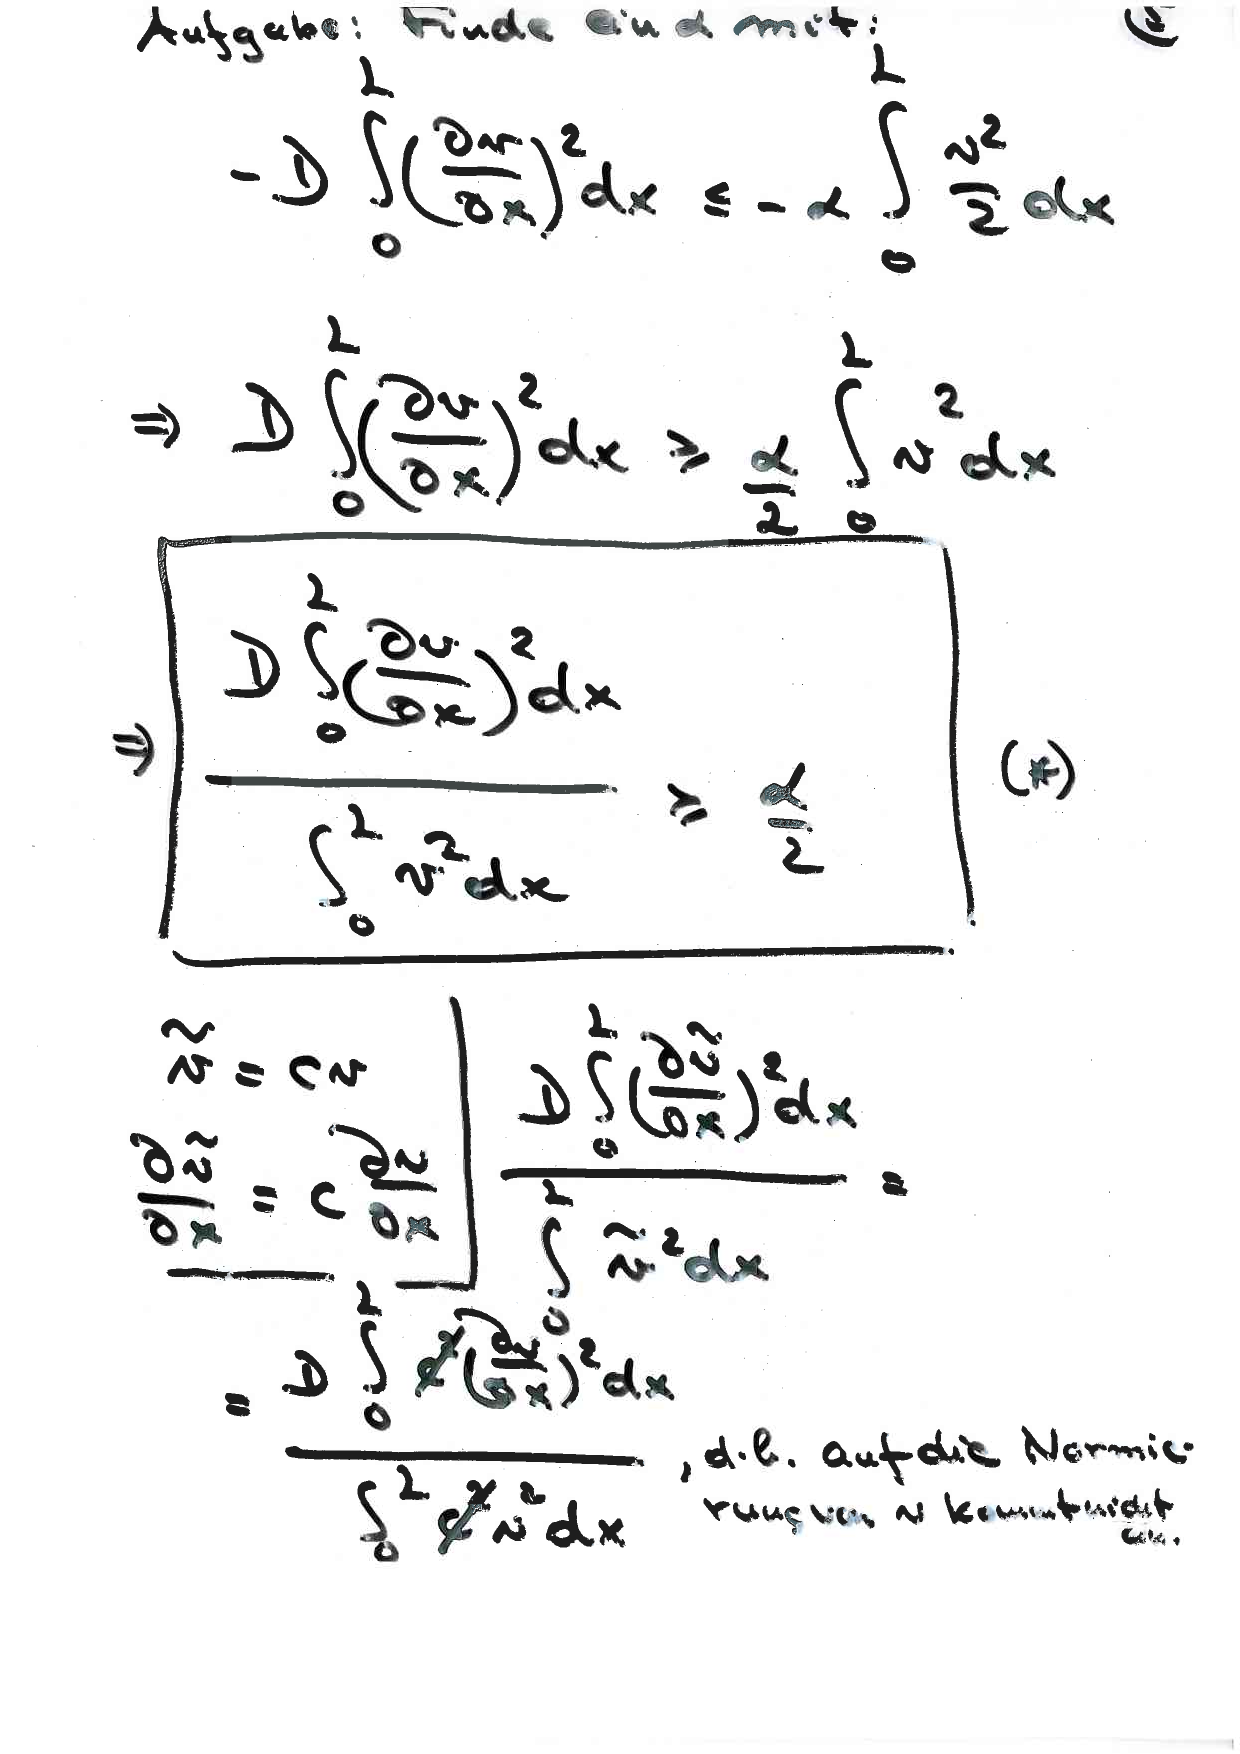 Aufgabe: Finde ein α mit:
-D ∫₀ᴸ (∂v/∂x)² dx ≤ -α ∫₀ᴸ v²/2 dx
⇒ D ∫₀ᴸ (∂v/∂x)² dx ≥ α/2 ∫₀ᴸ v² dx
⇒ D ∫₀ᴸ (∂v/∂x)² dx / ∫₀ᴸ v² dx ≥ α/2 (*)
ṽ = cv
∂ṽ/∂x = c ∂v/∂x
D ∫₀ᴸ (∂ṽ/∂x)² dx / ∫₀ᴸ ṽ² dx =
= D ∫₀ᴸ c² (∂v/∂x)² dx / ∫₀ᴸ c² v² dx , d.h. auf die Normie-
rung von v kommt nicht
an.